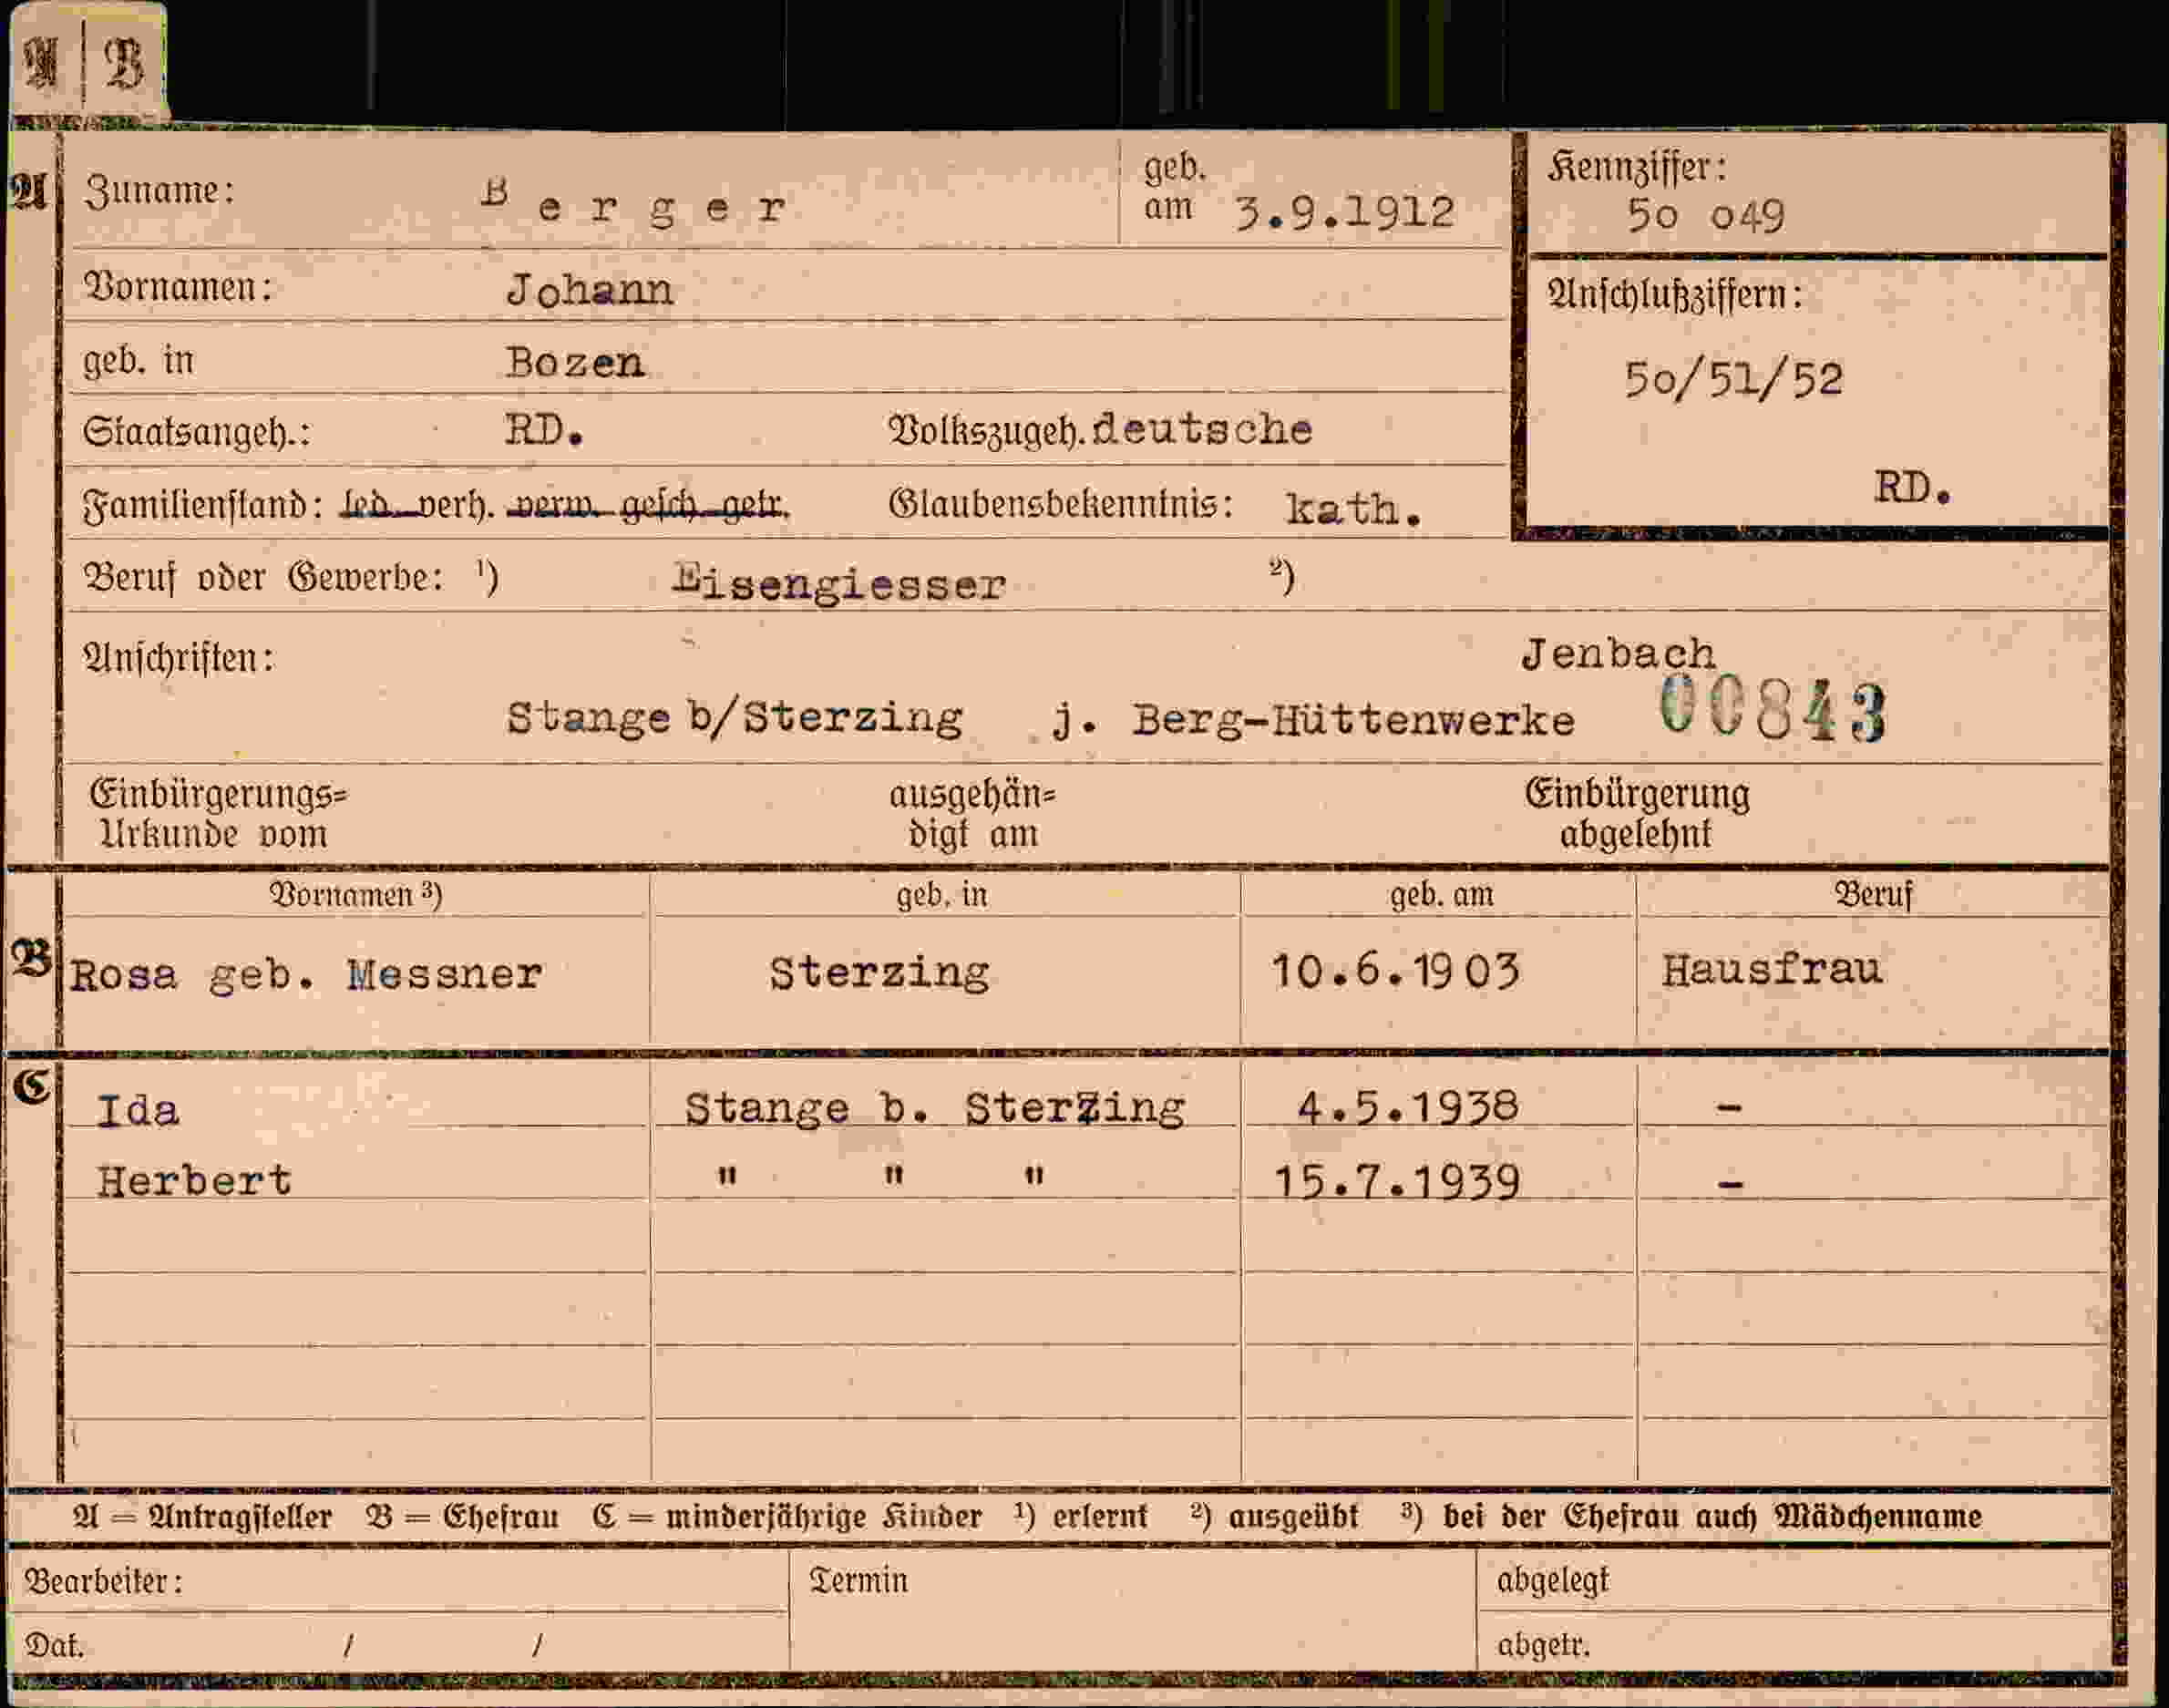 A | B
A Zuname: Berger geb. am 3.9.1912 Kennziffer: 50 049
Vornamen: Johann Anschlußziffern:
geb. in Bozen 50/51/52
Staatsangeh.: RD. Volkszugeh. deutsche
Familienstand: led. verh. verw. gesch. getr. Glaubensbekenntnis: kath. RD.
Beruf oder Gewerbe: 1) Eisengiesser 2)
Anschriften: Jenbach
Stange b/Sterzing j. Berg-Hüttenwerke 00843
Einbürgerungs= ausgehän= Einbürgerung
Urkunde vom digt am abgelehnt
Vornamen 3) geb. in geb. am Beruf
B Rosa geb. Messner Sterzing 10.6.1903 Hausfrau
C Ida Stange b. Sterzing 4.5.1938 -
Herbert " " " 15.7.1939 -
A = Antragsteller B = Ehefrau C = minderjährige Kinder 1) erlernt 2) ausgeübt 3) bei der Ehefrau auch Mädchenname
Bearbeiter: Termin abgelegt
Dat. / / abgetr.